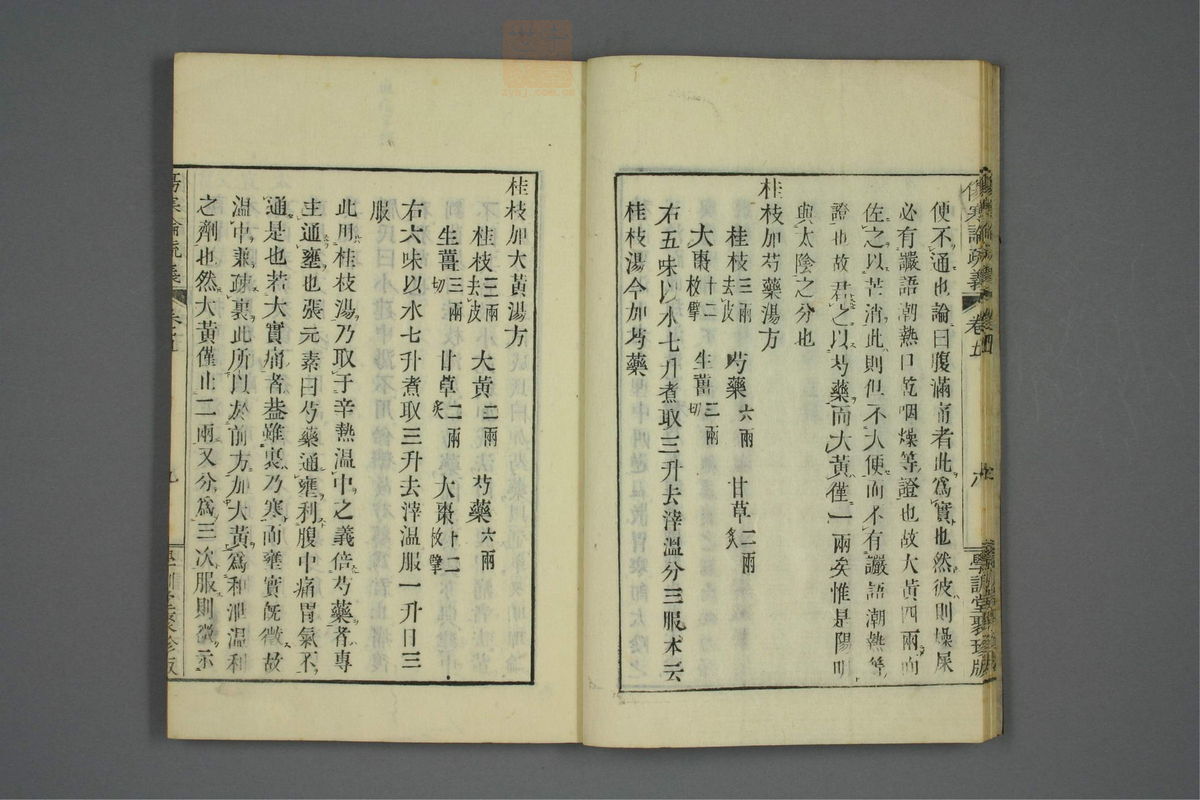 便不通也論曰腹滿痛者此爲實也然彼則燥屎
必有讝語潮熱口乾咽燥等證也故大黃四兩而
佐之以芒消此則但不大便而不有讝語潮熱等
證也故君之以芍藥而大黃僅一兩矣惟是陽明
與太陰之分也
桂枝加芍藥湯方
桂枝三兩去皮 芍藥六兩 甘草二兩炙
大棗十二枚擘 生薑三兩切
右五味以水七升煮取三升去滓溫分三服本云
桂枝湯今加芍藥
桂枝加大黃湯方
桂枝三兩去皮 大黃二兩 芍藥六兩
生薑三兩切 甘草二兩炙 大棗十二枚擘
右六味以水七升煮取三升去滓溫服一升日三
服
此用桂枝湯乃取于辛熱溫中之義倍芍藥者專
主通壅也張元素曰芍藥通壅利腹中痛胃氣不
通是也若大實痛者葢雖裏乃寒而壅實旣微故
溫中兼疏裏此所以於前方加大黃爲和泄溫利
之劑也然大黃僅止二兩又分爲三次服則微示
傷寒論疏義
卷五
學訓堂聚珍版